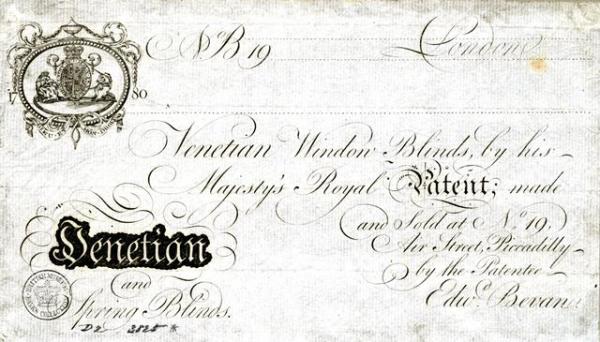 No B 19 London
17 80
Venetian Window Blinds, by his
Majesty's Royal Patent; made
and Sold at No. 19,
Air Street, Piccadilly
by the Patentee
Edwd. Bevan
Venetian
and
Spring Blinds.
D2 2525 *